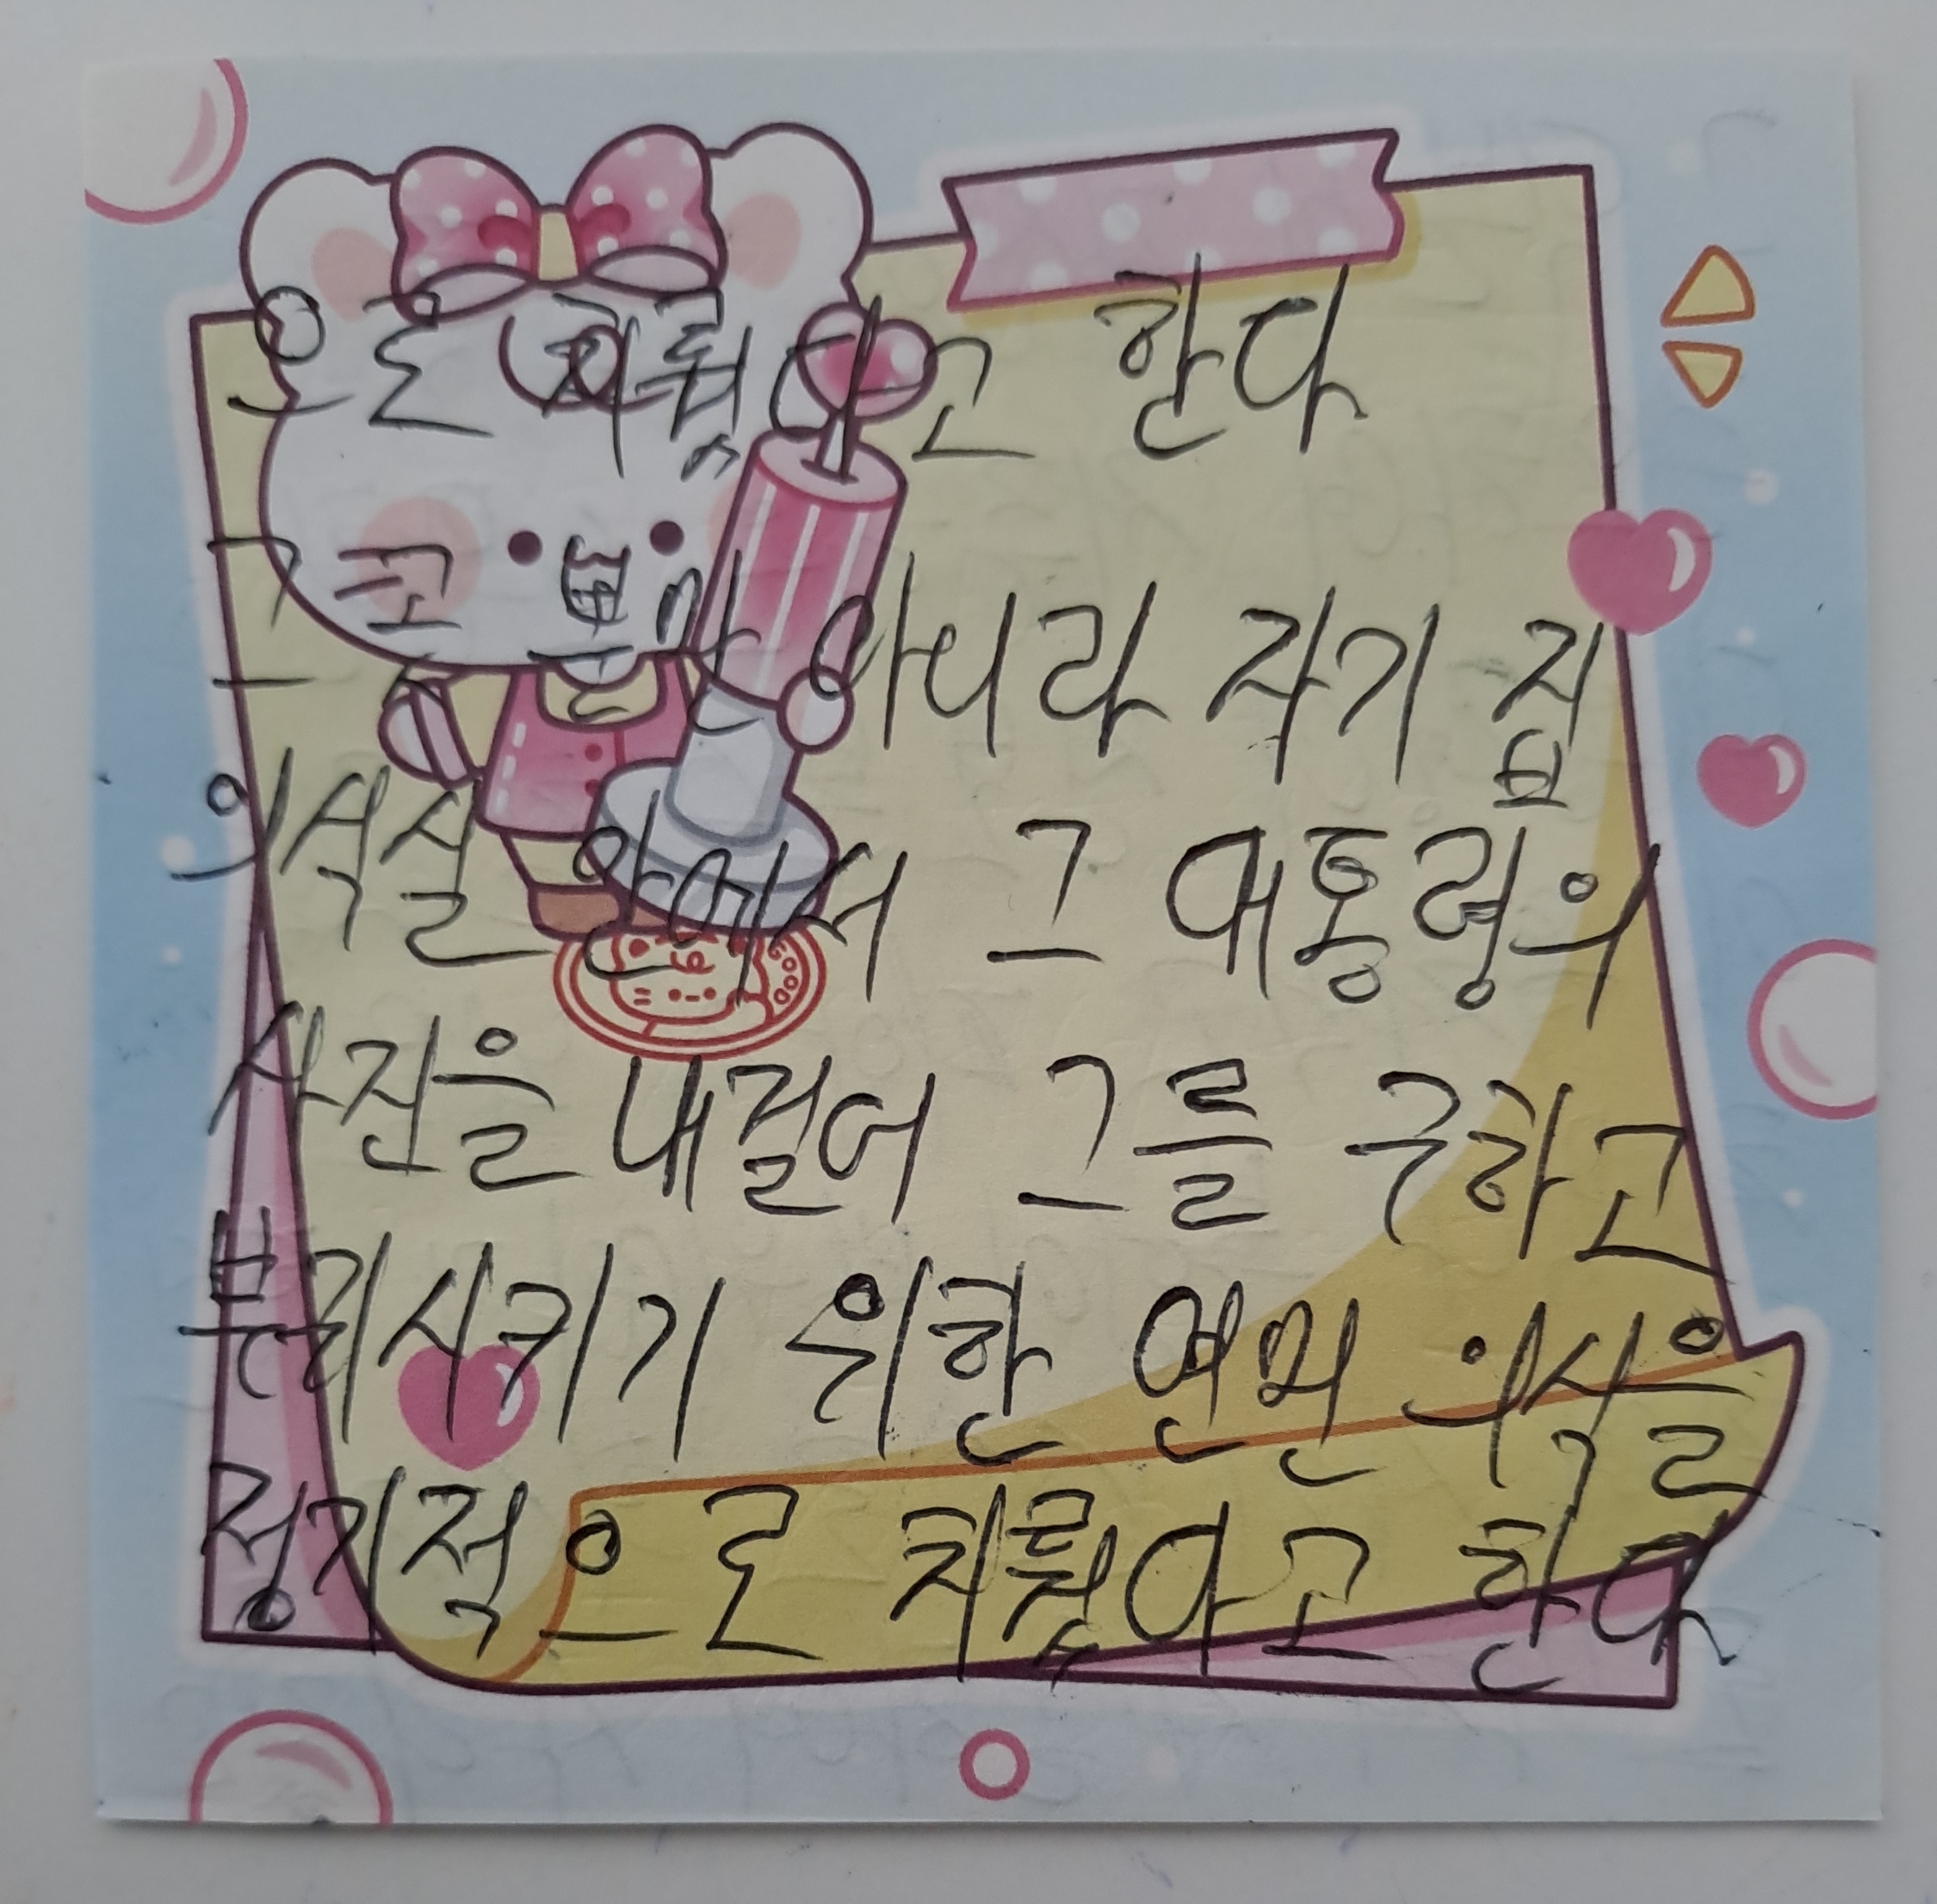 으로 치뤘다고 한다
그 코 뿐만 아니라 자기 집
의식실 안에서 그 대통령의
사진을 내걸어 그를 구하고
분리시키기 위한 연민 의식을
정기적으로 치뤘다고 한다